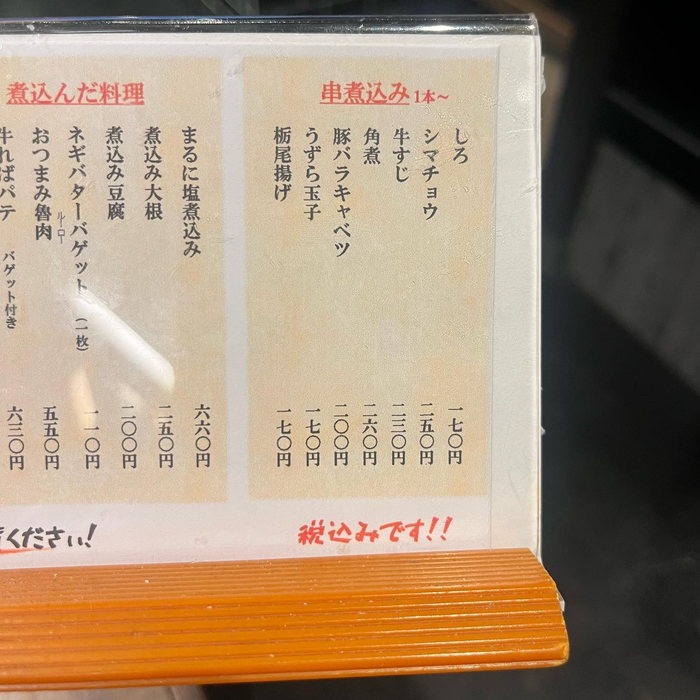 串煮込み 1本～
しろ 一七〇円
シマチョウ 二五〇円
牛すじ 二三〇円
角煮 二六〇円
豚バラキャベツ 二〇〇円
うずら玉子 一七〇円
栃尾揚げ 一七〇円
煮込んだ料理
まるに塩煮込み 六六〇円
煮込み大根 二五〇円
煮込み豆腐 二〇〇円
ネギバターバゲット（一枚） 一一〇円
おつまみ魯肉 五五〇円
ルーロー
牛ればパテ バゲット付き 六三〇円
税込みです!!
ください!